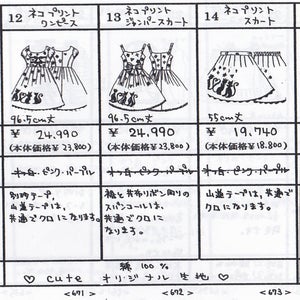 12 ネコプリント
ワンピース
96.5cm丈
¥ 24,990
(本体価格¥23,800)
ピンク・パープル
別珍テープ、
山道テープは、
共通でクロに
なります。
13 ネコプリント
ジャンパースカート
96.5cm丈
¥ 24,990
(本体価格¥23,800)
ピンク・パープル
衿と共布リボン周りの
スパンコールは、
共通でクロに
なります。
14 ネコプリント
スカート
55cm丈
¥ 19,740
(本体価格¥18,800)
ピンク・パープル
山道テープは、
共通でクロに
なります。
綿 100%
♡ cute オリジナル 生地 ♡
<671>
<672>
<673>